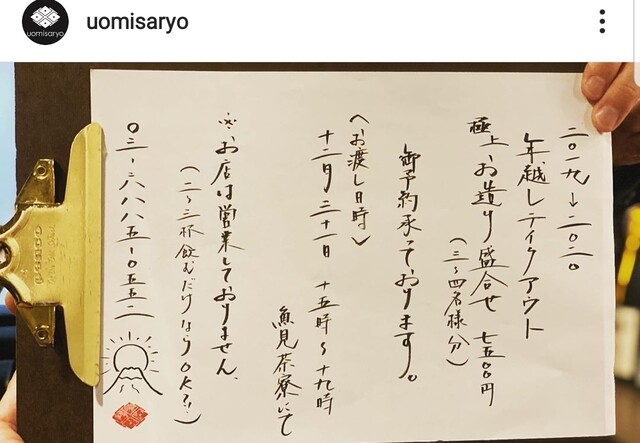 uomisaryo
uomisaryo
二〇一九→二〇二〇
年越しテイクアウト
極上お造り盛合せ 七五〇〇円
(三〜四名様分)
御予約承っております。
〈お渡し日時〉
十二月三十一日 十五時〜十九時
魚見茶寮にて
※お店は営業しておりません。
(二〜三杯飲むだけならOK?!)
〇三-六八八五-〇五五二